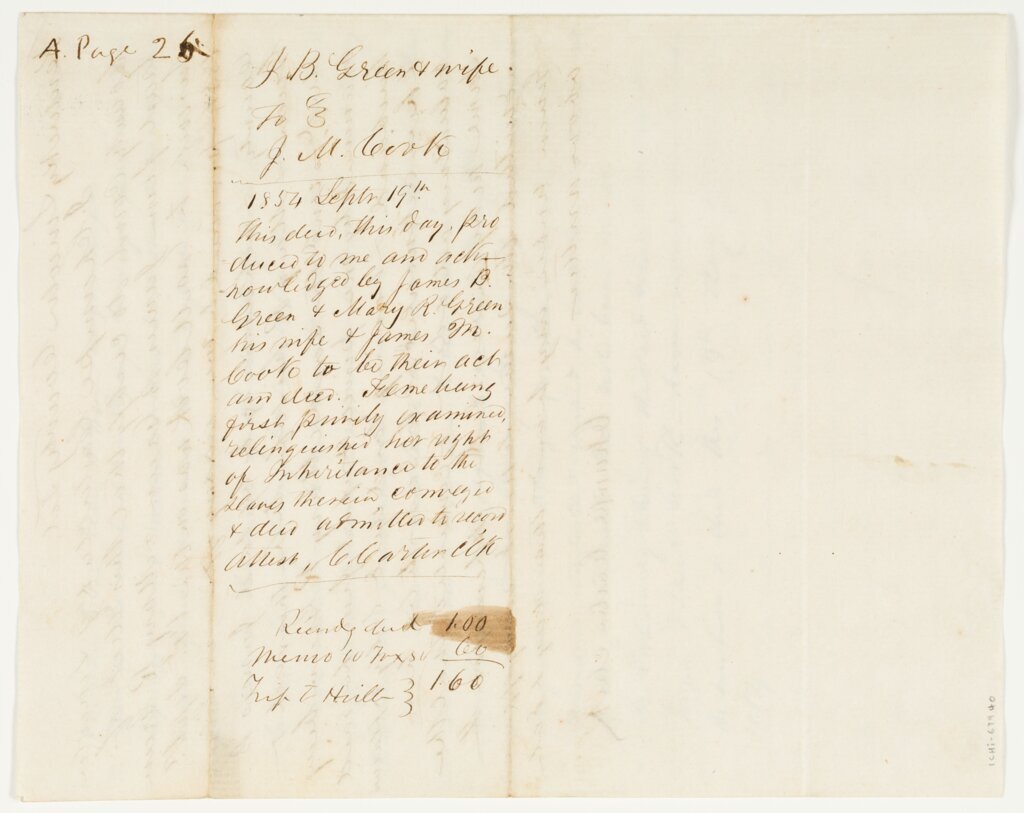 A. Page 26
J. B. Green & wife
To
J. M. Cook
1854 Septr 19th
This deed, this day, pro
duced to me and ack-
nowledged by James B.
Green & Mary R. Green
his wife & James M.
Cook to be their act
and deed. Feme being
first privily examined,
relinquished her right
of Inheritance to the
slaves therein conveyed
& deed admitted to record
Attest, C. Carter Clk
Recordg deed 1.00
Memo 60
Trip to 1.60
ICHi-67940